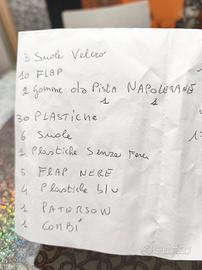 3 Suole Velcro
10 FLAP
2 gomme da Pista NAPOLETANE
1 1
30 PLASTICHE
6 Suole
2 Plastiche Senza Fori
5 FLAP NERE
4 Plastiche blu
1 PATERSON
1 COMBI